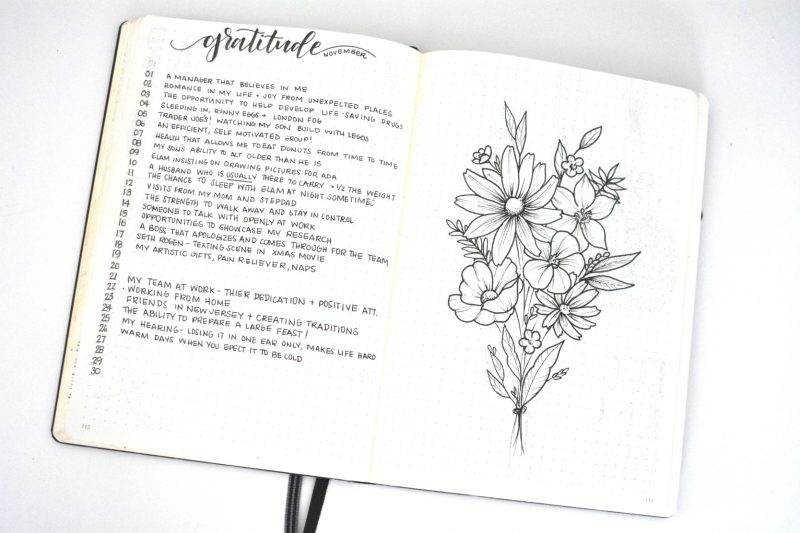 gratitude NOVEMBER
01 A MANAGER THAT BELIEVES IN ME
02 ROMANCE IN MY LIFE + JOY FROM UNEXPECTED PLACES
03 THE OPPORTUNITY TO HELP DEVELOP LIFE-SAVING DRUGS
04 SLEEPING IN, RUNNY EGGS + LONDON FOG
05 TRADER JOE'S! WATCHING MY SON BUILD WITH LEGOS
06 AN EFFICIENT, SELF MOTIVATED GROUP!
07 HEALTH THAT ALLOWS ME TO EAT DONUTS FROM TIME TO TIME
08 MY SON'S ABILITY TO ACT OLDER THAN HE IS
09 ELAM INSISTING ON DRAWING PICTURES FOR ADA
10 A HUSBAND WHO IS USUALLY THERE TO CARRY > 1/2 THE WEIGHT
11 THE CHANCE TO SLEEP WITH ELAM AT NIGHT SOMETIMES
12 VISITS FROM MY MOM AND STEPDAD
13 THE STRENGTH TO WALK AWAY AND STAY IN CONTROL
14 SOMEONE TO TALK WITH OPENLY AT WORK
15 OPPORTUNITIES TO SHOWCASE MY RESEARCH
16 A BOSS THAT APOLOGIZES AND COMES THROUGH FOR THE TEAM
17 SETH ROGEN - TEXTING SCENE IN XMAS MOVIE
18 MY ARTISTIC GIFTS, PAIN RELIEVER, NAPS
19
20
21 MY TEAM AT WORK - THIER DEDICATION + POSITIVE ATT.
22 WORKING FROM HOME
23 FRIENDS IN NEW JERSEY + CREATING TRADITIONS
24 THE ABILITY TO PREPARE A LARGE FEAST!
25 MY HEARING - LOSING IT IN ONE EAR ONLY, MAKES LIFE HARD
26 WARM DAYS WHEN YOU EPECT IT TO BE COLD
27
28
29
30